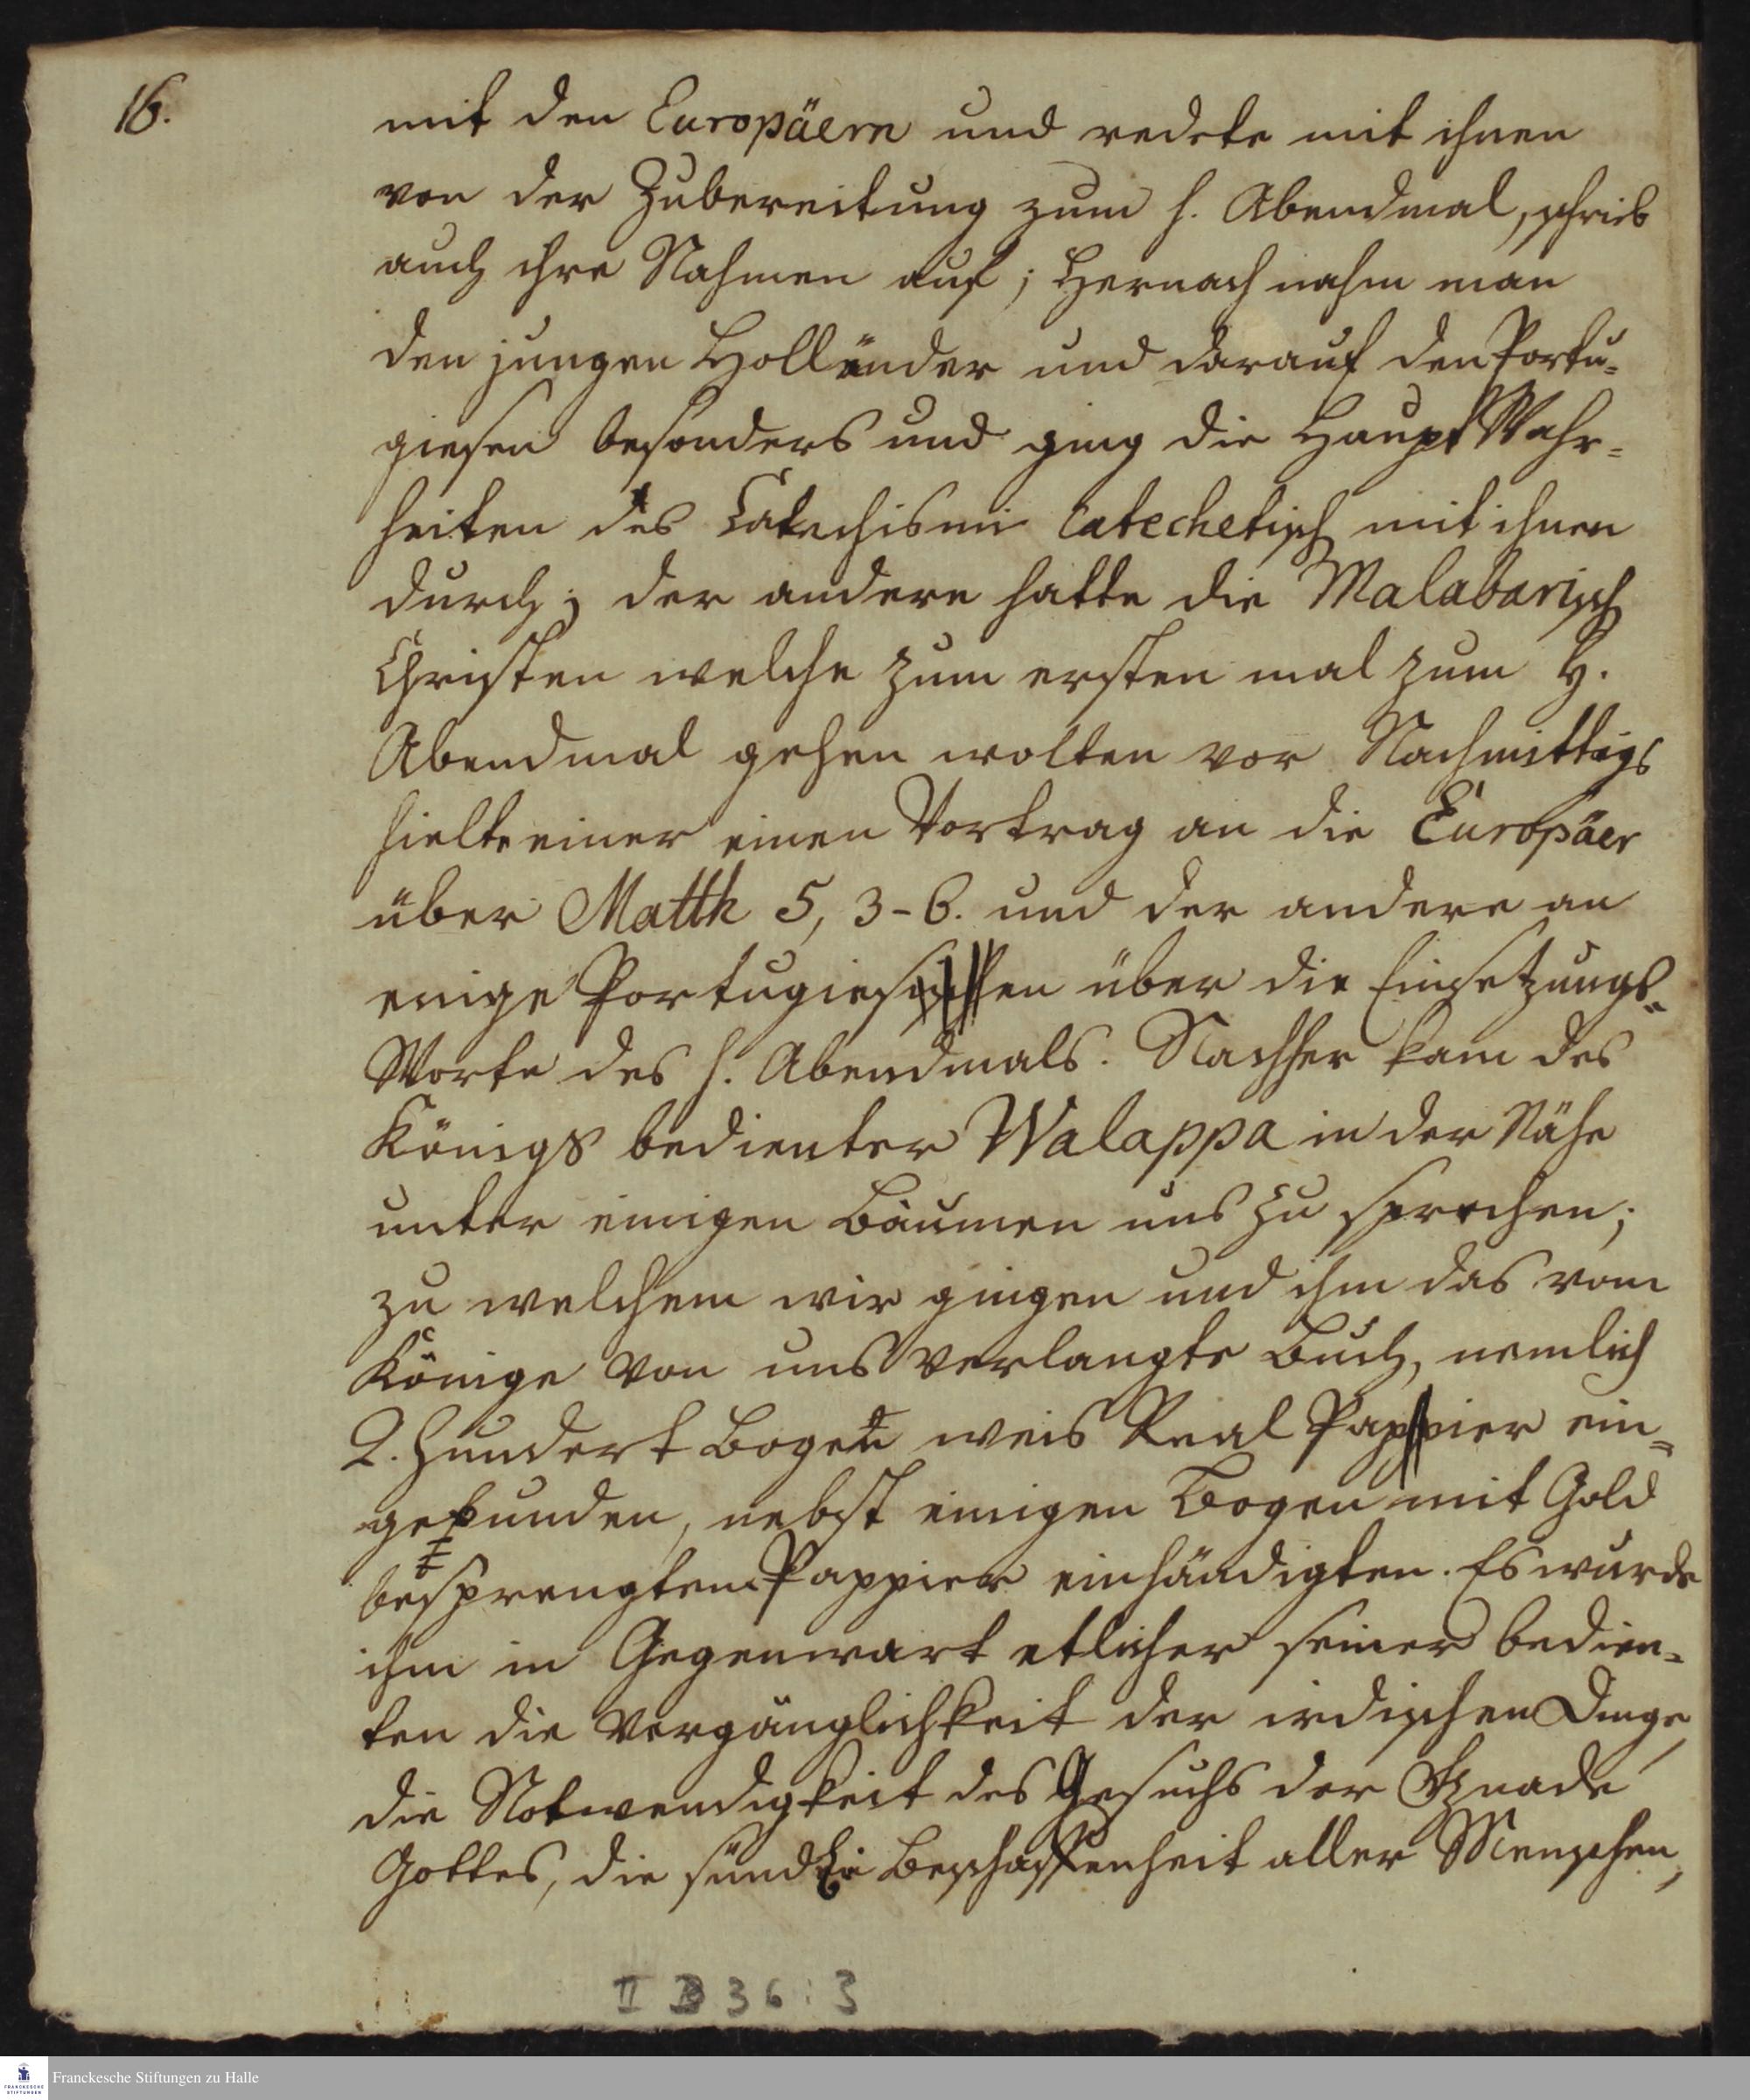 16.
mit den Europäern und redete mit ihnen
von der Zubereitung zum h. Abendmal, schrieb
auch ihre Nahmen auf; Hernach nahm man
den jungen Holländer und darauf den Portu=
giesen besonders und ging die Haupt Wahr=
heiten des Catechismi catechetisch mit ihnen
durch; der andere hatte die Malabarisch
Christen welche zum ersten mal zum H.
Abendmal gehen wolten vor Nachmittags
hielte einer einen Vortrag an die Europäer
über Matth 5, 3-6. und der andere an
einige Portugiesen über die Einsetzungs=
Worte des h. Abendmals. Nachher kam des
Königs bedienter Walappa in der Nähe
unter einigen Bäumen uns zu sprechen;
zu welchem wir gingen und ihm das vom
Könige von uns verlangte Buch, nemlich
2. hundert Bogen weis Real Pappier ein=
gebunden, nebst einigen Bogen mit Gold
besprengten Pappier einhändigten. Es wurde
ihm in Gegenwart etlicher seiner bedien=
ten die Vergänglichkeit der irdischen Dinge,
die Notwendigkeit des Gesuchs der Gnade
Gottes, die Beschaffenheit aller Menschen,
II B 36 : 3
FRANCKESCHE STIFTUNGEN
Franckesche Stiftungen zu Halle